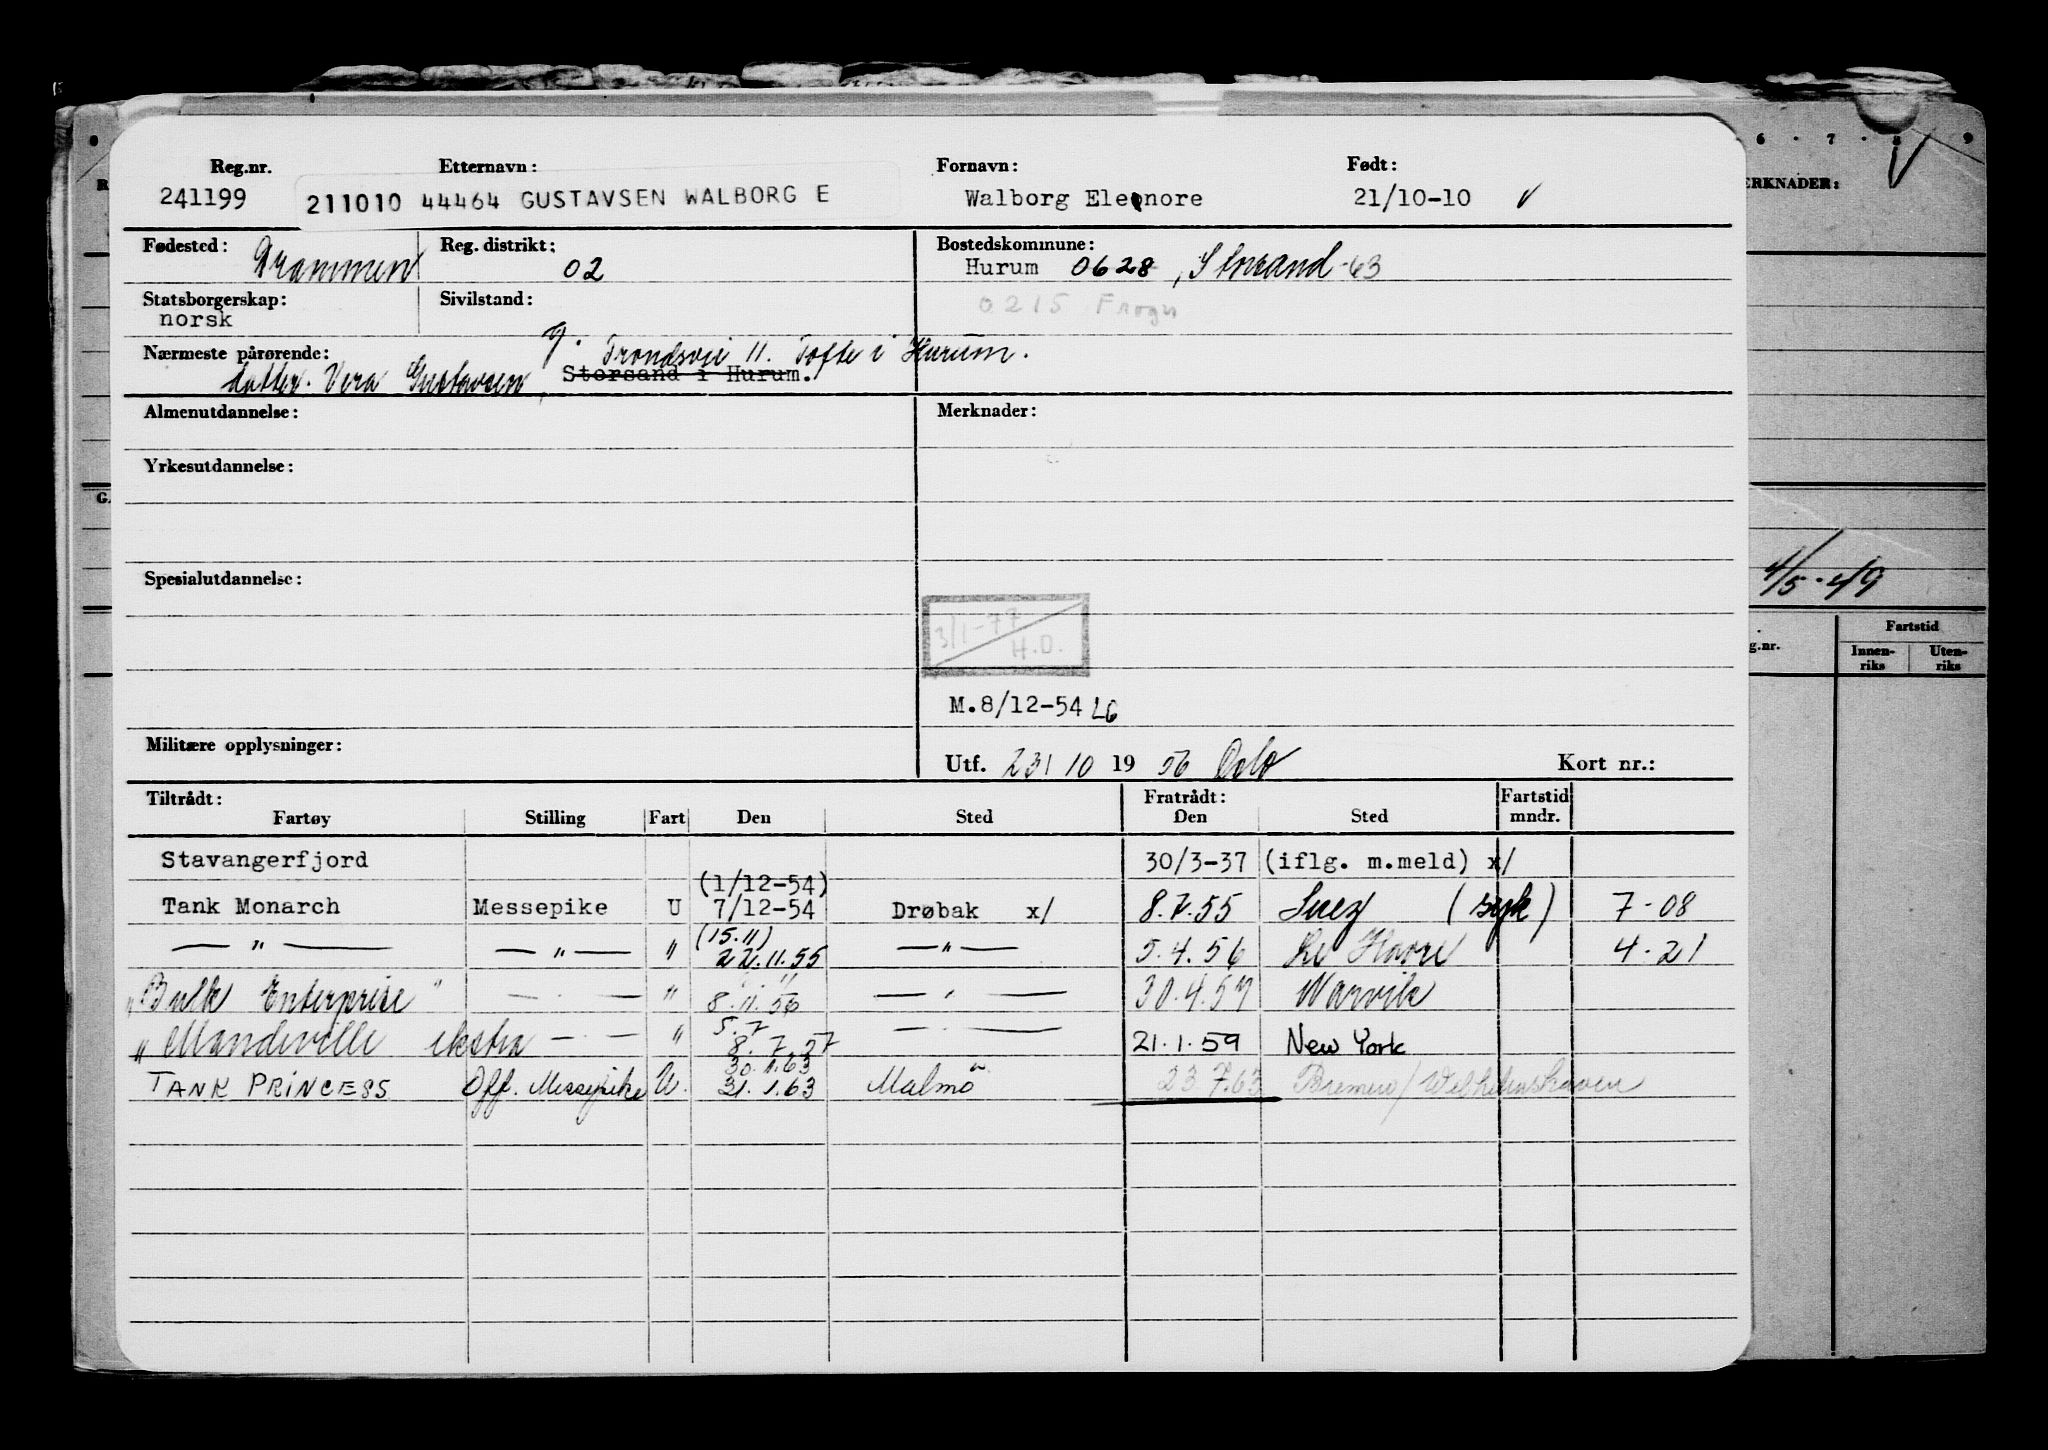 Reg.nr. Etternavn: Fornavn: Født:
241199 211010 44464 GUSTAVSEN WALBORG E Walborg Eleonore 21/10-10 V
Fødested: Drammen Reg. distrikt: 02 Bostedskommune:
Hurum 0628, Storsand-63
Statsborgerskap: Sivilstand: 0215 Frogn
norsk g.
Nærmeste pårørende: Trondsvei 11. Tofte i Hurum.
datter. Vera Gustavsen, Storsand i Hurum.
Almenutdannelse: Merknader:
Yrkesutdannelse:
Spesialutdannelse:
3/1-77
H.O.
M.8/12-54 LG
Militære opplysninger: Utf. 23/10 19 56 Oslo Kort nr.:
Tiltrådt: Fratrådt: Fartstid
Fartøy Stilling Fart Den Sted Den Sted mndr.
Stavangerfjord 30/3-37 (iflg. m.meld) x/
(1/12-54)
Tank Monarch Messepike U 7/12-54 Drøbak x/ 8.7.55 Suez (syk) 7-08
(15.11)
— " — — " — " 22.11.55 — " — 5.4.56 Le Havre 4-21
" "
"Bulk Enterprise" — " — " 8.11.56 — " — 30.4.57 Narvik
5.7
"Mandeville ekstra — " — " 8.7.57 — " — 21.1.59 New York
30.1.63
TANK PRINCESS Off. Messepike U. 31.1.63 Malmö 23 7.63 Bremen/Wilhelmshaven
6 · 7 · 8 9
ERKNADER: V
4/5-49
g.nr. Fartstid
Innen-riks Uten-riks